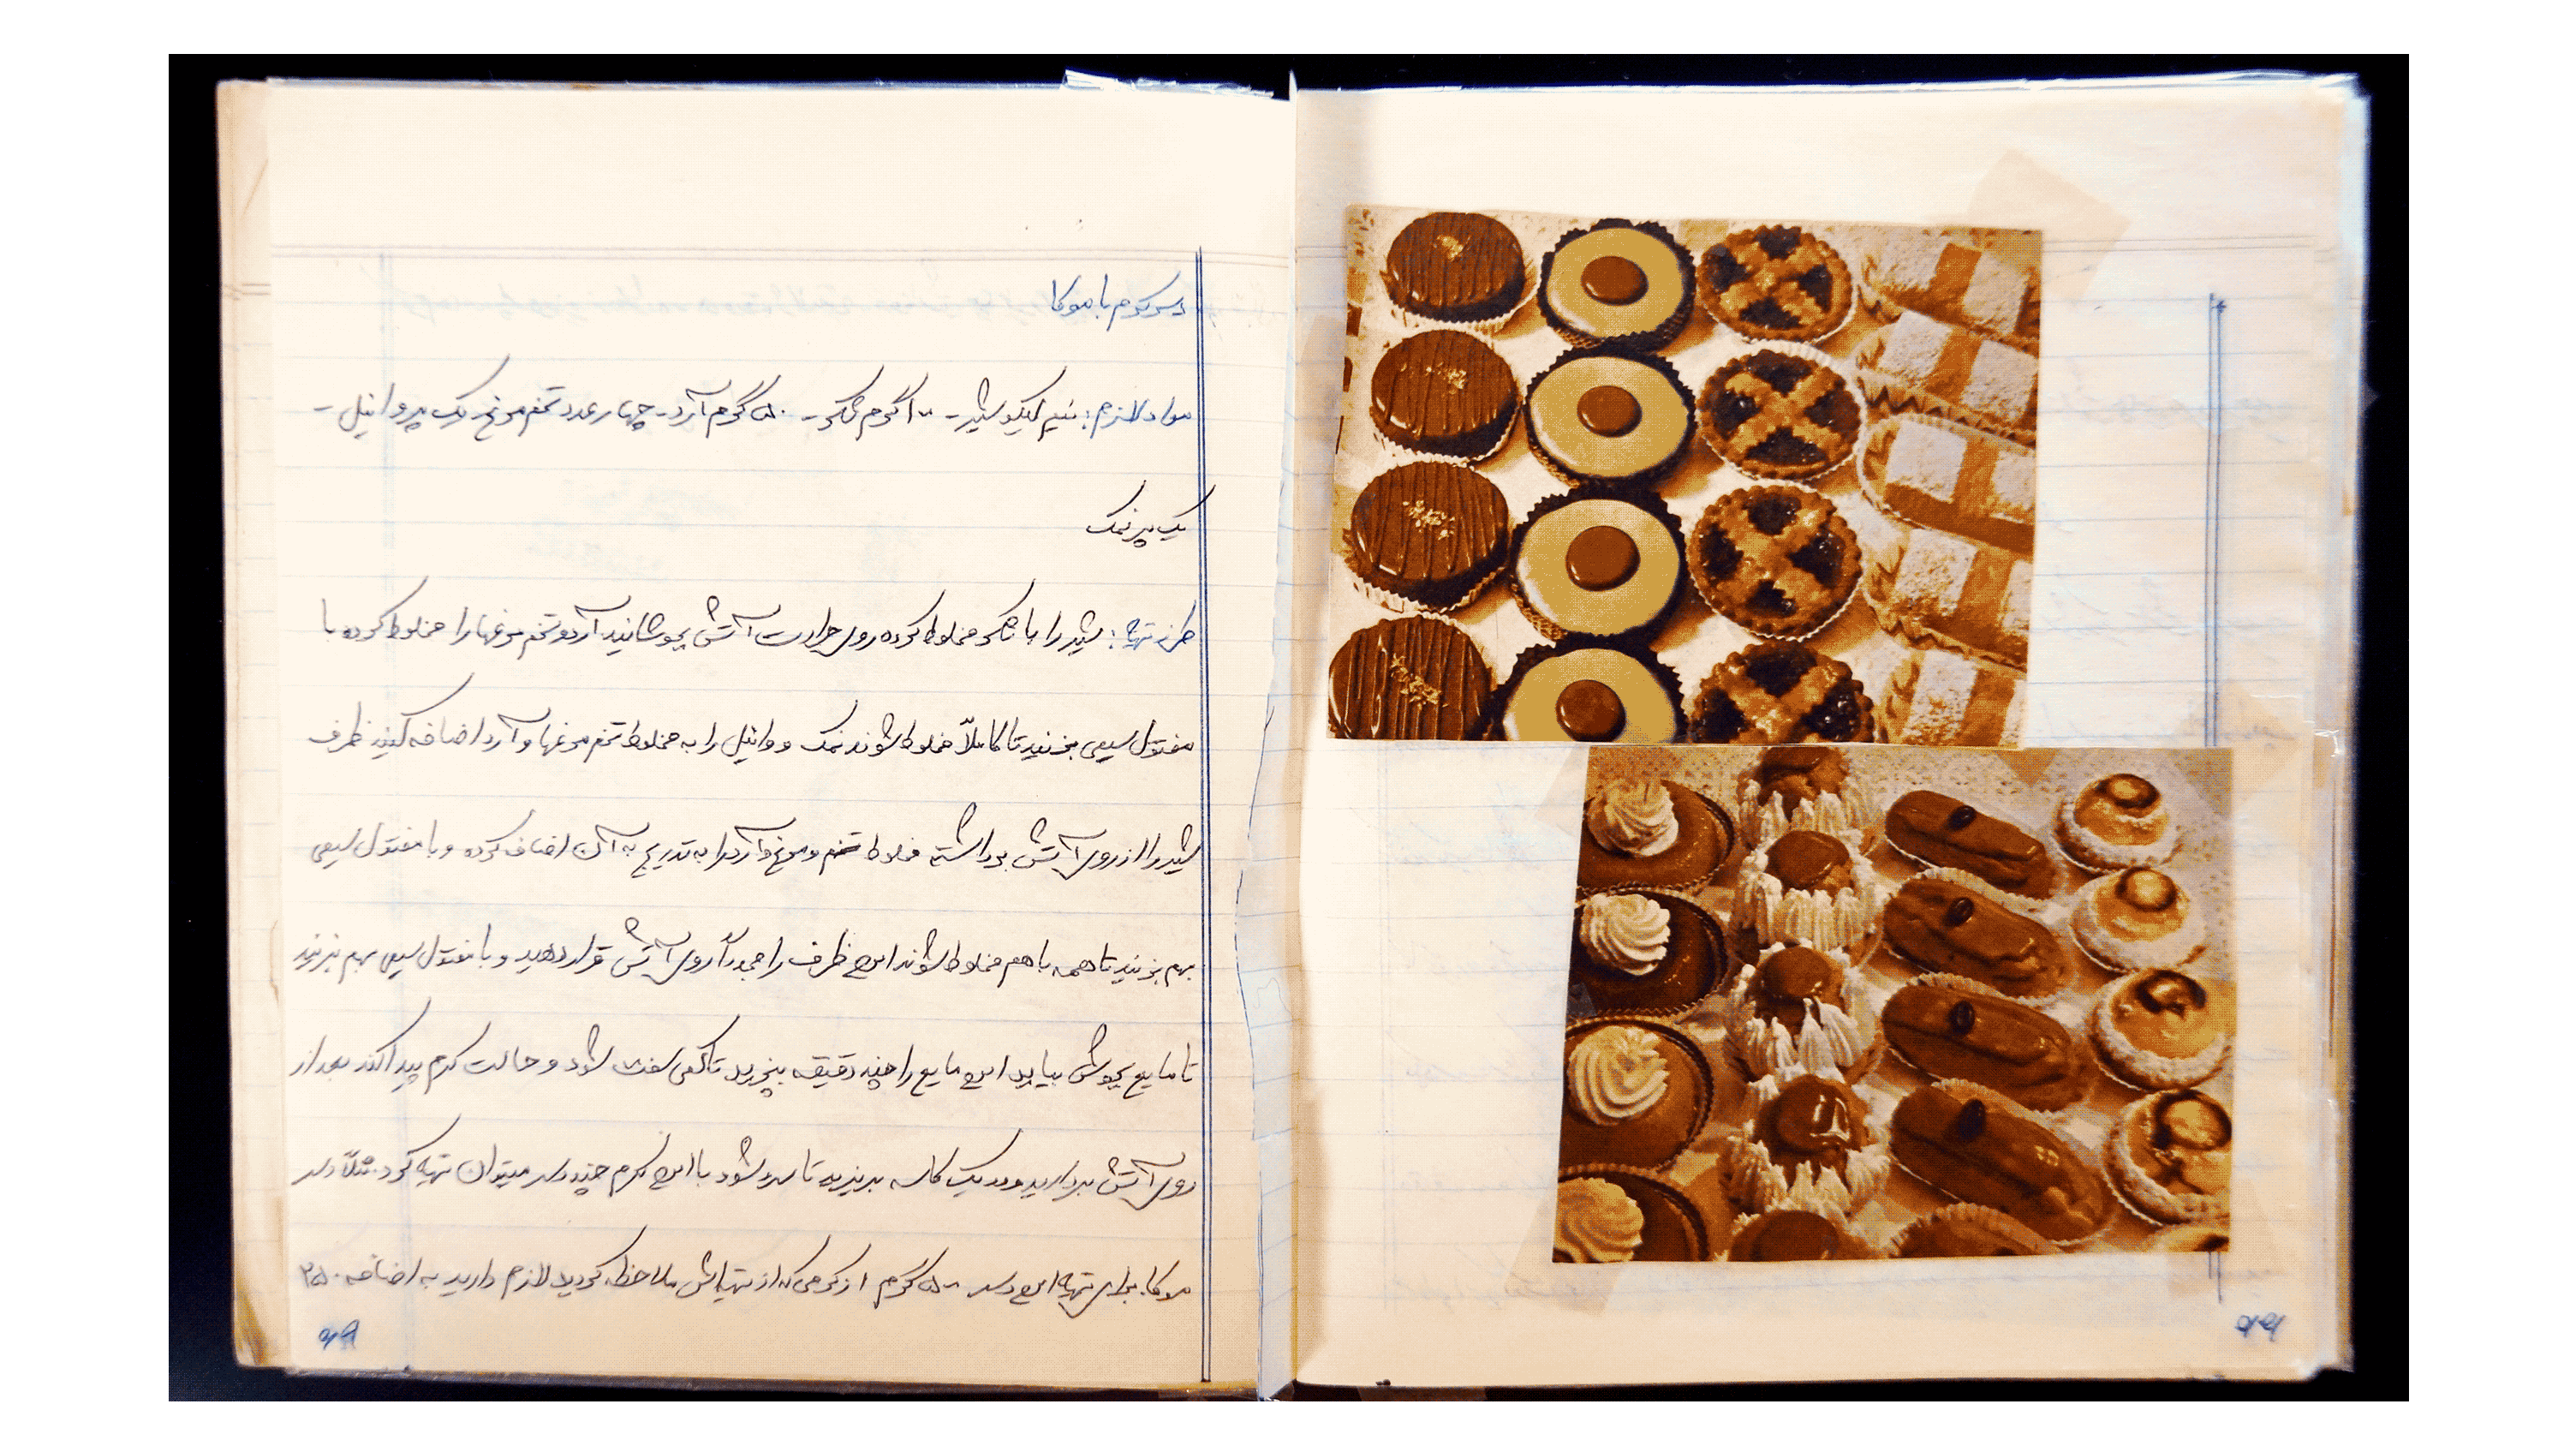 دسر کرم با موکا
مواد لازم: نیم لیکو شیر - ۱۰۰ گرم شکر - ۵۰ گرم آرد - چهار عدد تخم مرغ - یک پر وانیل -
یک پر نمک
طرز تهیه: شیر را با شکر مخلوط کرده روی حرارت آتش بجوشانید آرد و تخم مرغها را مخلوط کرده با
مفتول سیمی بزنید تا کاملاً مخلوط شوند نمک و وانیل را به مخلوط تخم مرغها و آرد اضافه کنید ظرف
شیر را از روی آتش برداشته مخلوط تخم و مرغ و آرد را به تدریج به آن اضافه کرده و با مفتول سیمی
بهم بزنید تا همه با هم مخلوط شوند این ظرف را مجدداً روی آتش قرار دهید و با مفتول سیمی بهم بزنید
تا مایع بجوش بیاید این مایع را چند دقیقه بپزید تا کمی سفت شود و حالت کرم پیدا کند بعد از
روی آتش بردارید و در یک کاسه بریزید تا سرد شود با این کرم چند دسر میتوان تهیه کرد. مثلاً دسر
موکا. برای تهیه این دسر ۵۰۰ گرم از کرمی که از تهیه‌اش ملاحظه کردید لازم دارید به اضافه ۲۵۰